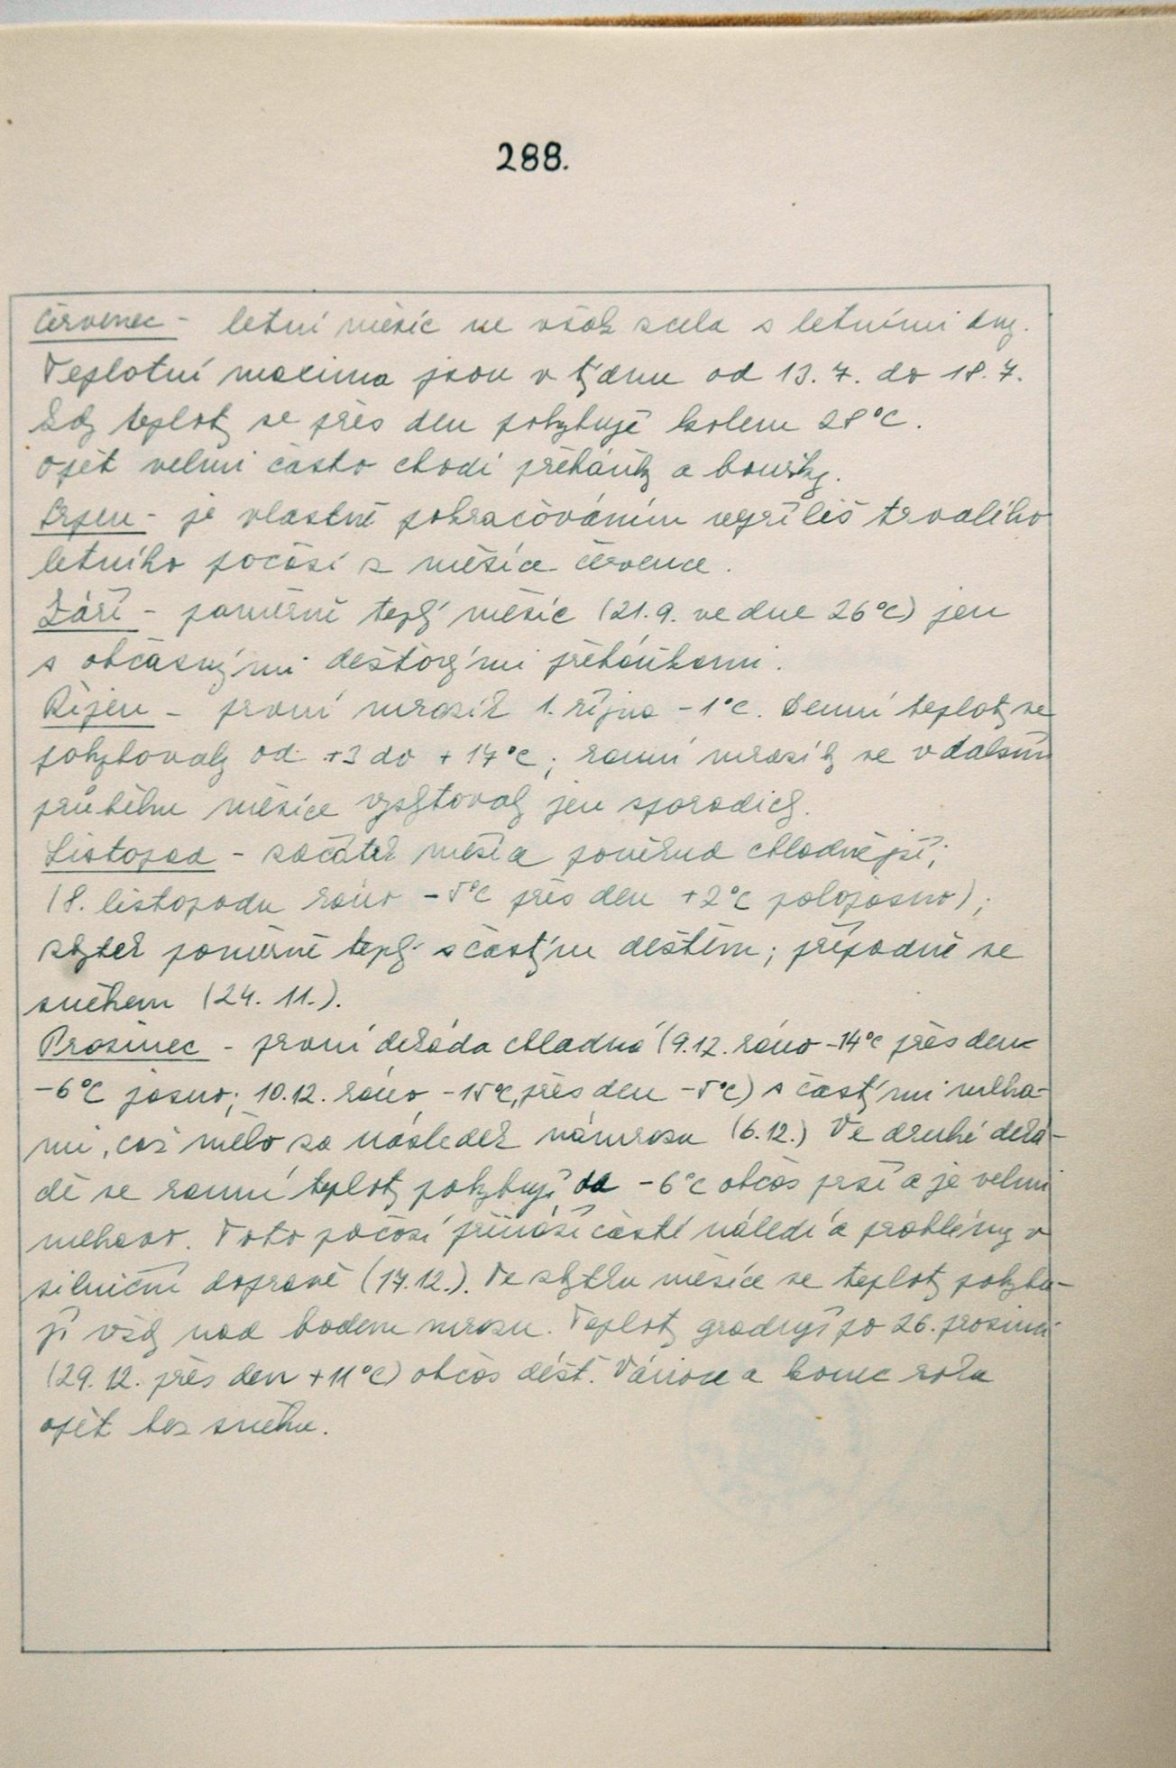 288.
Červenec - letní měsíc ne však zcela s letními dny.
Teplotní maxima jsou v týdnu od 13. 7. do 18. 7.
kdy teploty se přes den pohybují kolem 28°C.
Opět velmi často chodí přeháňky a bouřky.
Srpen - je vlastně pokračováním nepříliš trvalého
letního počasí z měsíce července.
Září - poměrně teplý měsíc (21. 9. ve dne 26°C) jen
s občasnými dešťovými přeháňkami.
Říjen - první mrazík 1. října -1°C. Denní teploty se
pohybovaly od +3 do +17°C; ranní mrazíky se v dalším
průběhu měsíce vyskytovaly jen sporadicky.
Listopad - začátek měsíce poměrně chladnější;
(8. listopadu ráno -5°C přes den +2°C polojasno);
zbytek poměrně teplý s častým deštěm; případně se
sněhem (24. 11.).
Prosinec - první dekáda chladná (9.12. ráno -14°C přes den
-6°C jasno; 10.12. ráno -15°C, přes den -5°C) s častými mlha-
mi, což mělo za následek námrazu (6.12.) Ve druhé deká-
dě se ranní teploty pohybují do -6°C občas prší a je velmi
mlhavo. Toto počasí přináší časté náledí a problémy v
silniční dopravě (17.12.). Ve zbytku měsíce se teploty pohybu-
jí vždy nad bodem mrazu. Teploty gradují po 26. prosinci
(29. 12. přes den +11°C) občas déšť. Vánoce a konec roku
opět bez sněhu.